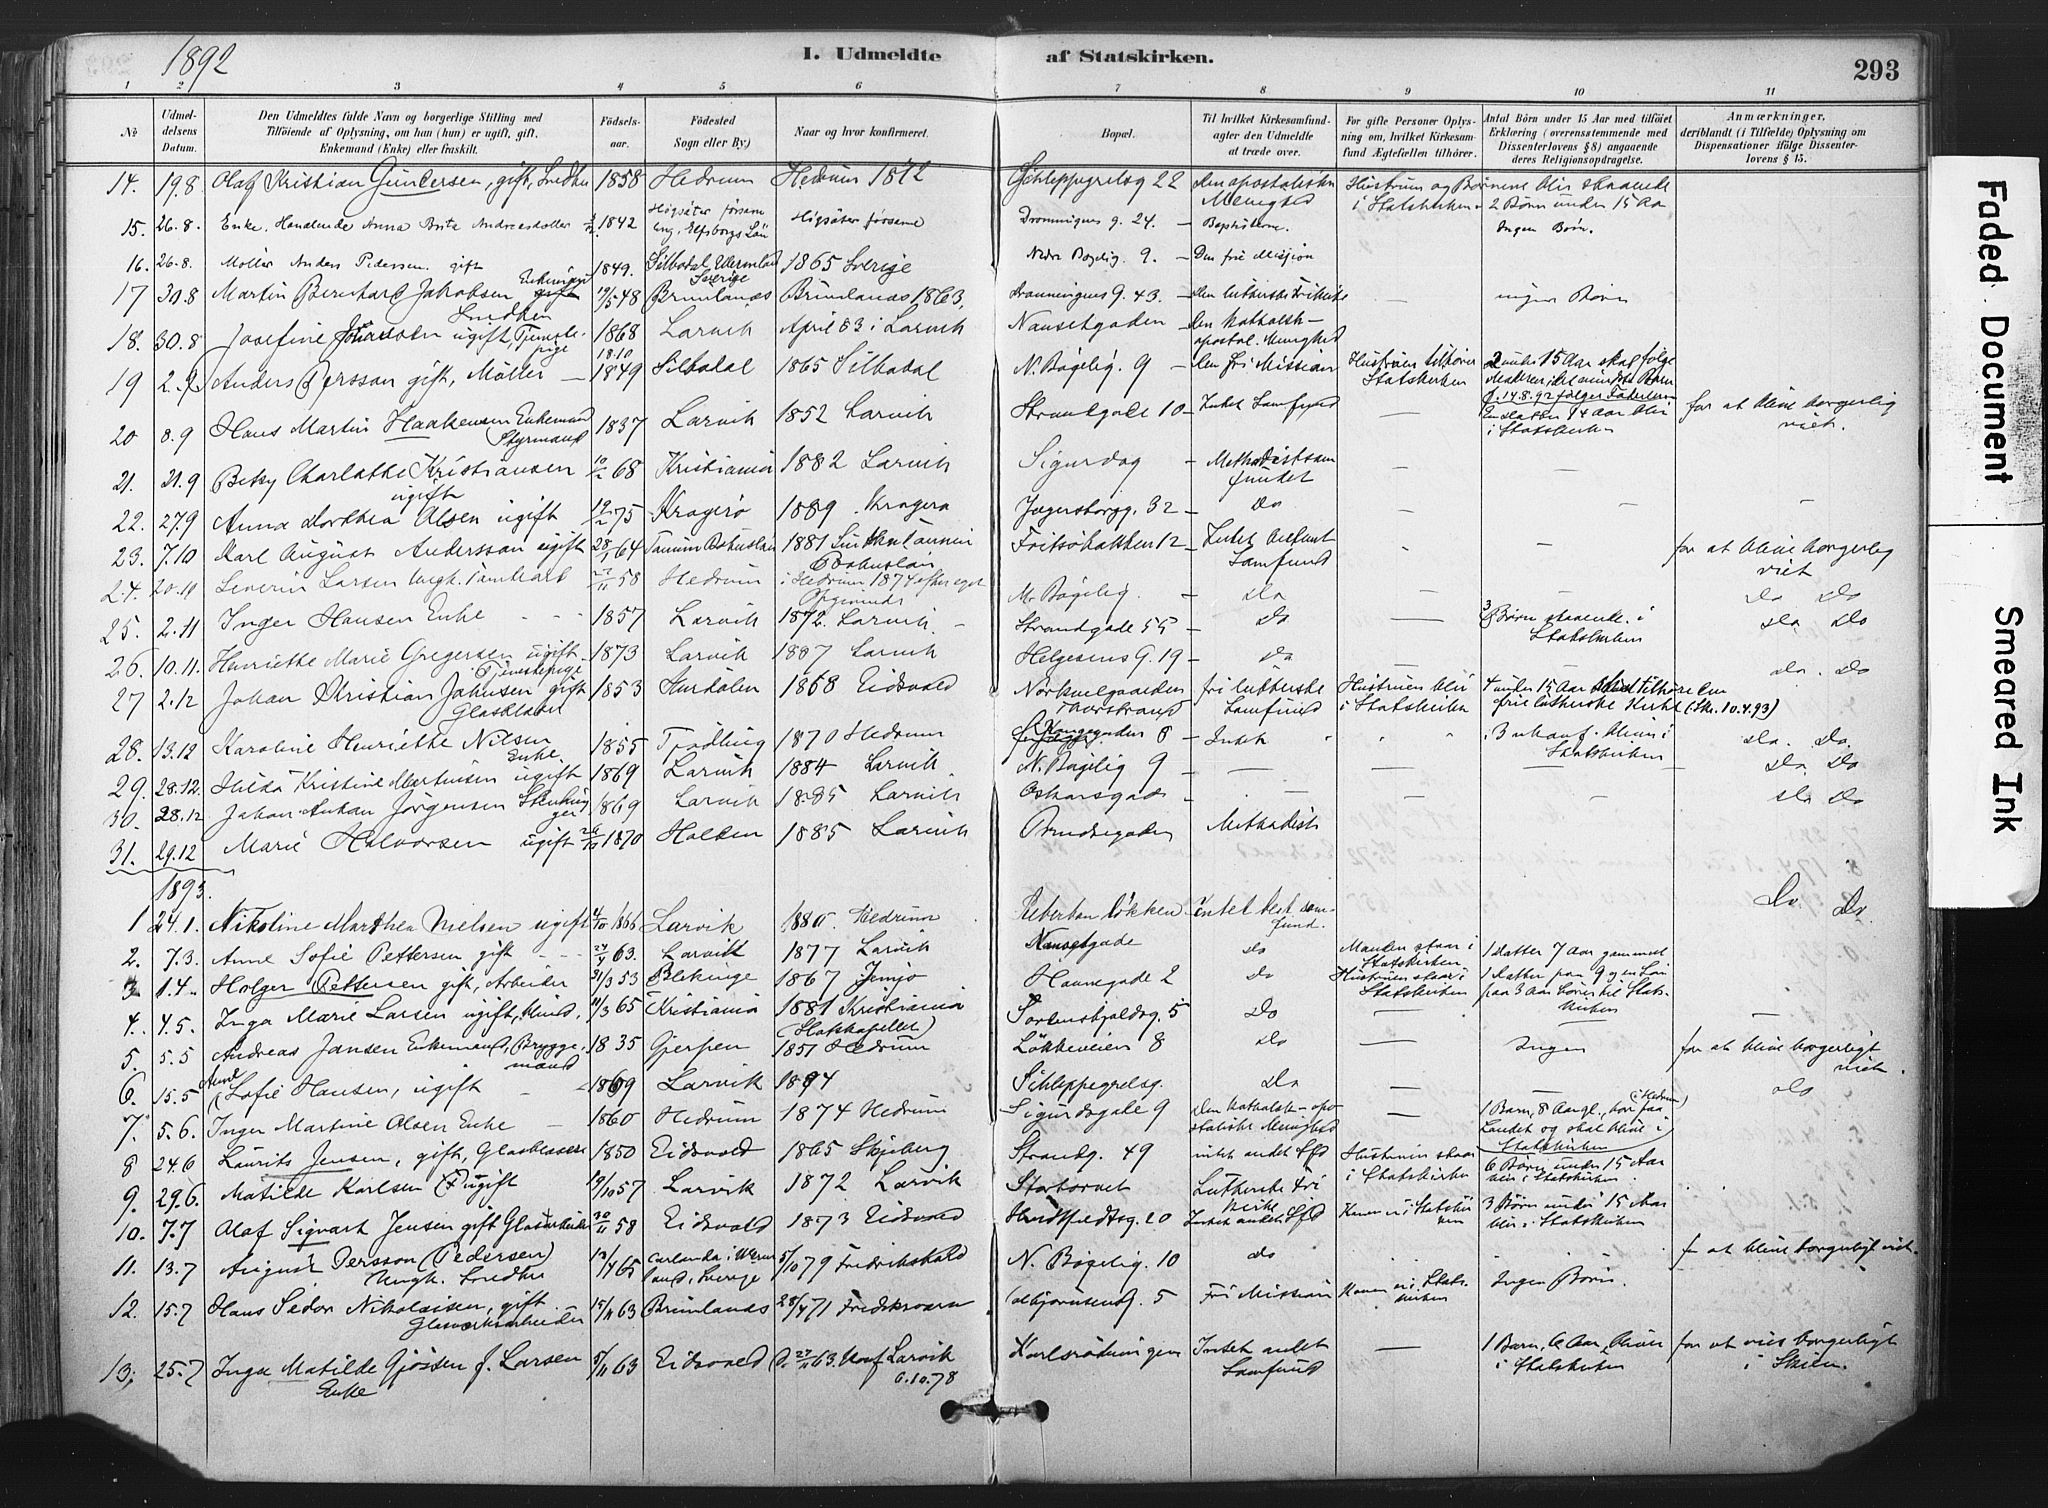 1892
I. Udmeldte af Statskirken.
293
1 2 3 4 5 6 7 8 9 10 11
No
Udmeldelsens Datum.
Den Udmeldtes fulde Navn og borgerlige Stilling med Tilføiende af Oplysning, om han (hun) er ugift, gift, Enkemand (Enke) eller fraskilt.
Fødselsaar.
Fødested Sogn eller By)
Naar og hvor konfirmeret.
Bopæl.
Til hvilket Kirkesamfund agter den Udmeldte at træde over.
For gifte Personer Oplysning om, hvilket Kirkesamfund Ægtefællen tilhører.
Antal Børn under 15 Aar med tilføiet Erklæring (overensstemmende med Dissenterlovens § 8) angaaende deres Religionsopdragelse.
Anmærkninger, deriblandt (i Tilfælde) Oplysning om Dispensationer ifølge Dissenterlovens § 15.
14. 19.8 Olaf Kristian Gundersen, gift, 1858 Hedrum Hedrum 1872 Schleppegrelsg 22 Den apostoliske Menighed Hustrum og Børnene blir staaende i Statskirken 2 Børn under 15 Aar
15. 26.8. Enke, Handlende Anna Brita Andreasdotter 1842 Högsäter församling, Elfsborgs Län Högsäter församl Dronningens g. 24. Baptisterne. Ingen Børn.
16. 26.8. Møller Anders Pedersen. gift 1849. Silbodal Wermland Sverige 1865 Sverige Nedre Bøgelig. 9. Den frie Mission
17 30.8 Martin Bernhard Jakobsen Enkemand 19/5 48 Brunlanæs Brunlanæs 1863, Dronningens G. 43. Den lutherske Frikirke — ingen Børn
18. 30.8 Josefine Johansen ugift, Tjenestepige 1868 Larvik April 83 i Larvik Nansetgaden Den katholsk-apostol. Menighed
19 2.9 Anders Persson gift, Møller 18.10 1849 Silbodal 1865 Silbodal N. Bøgelig. 9 Den fri Mission Hustruen tilhører Statskirken 2 under 15 Aar skal følge Moderen, det mindste Barn f. 14.8.92 følger Faderen
20 8.9 Hans Martin Haakensen Enkemand Styrmand 1837 Larvik 1852 Larvik Strandgade 10 Intet Samfund — En datter 14 Aar blir i Statskirken for at blive borgerlig viet.
21. 21.9 Betsy Charlotte Kristiansen ugift 68 Kristiania 1882 Larvik Sigurdsg Methodistsamfundet — —
22. 27.9 Anna Dorthea Olsen ugift 19/2 75 Kragerø 1889 Kragerø Jegersborgg. 32 Do — —
23. 7.10 Karl August Andersson ugift 28/1 64 Tanum Bohuslän 1881 Bohuslän Fritsøbakken 12 Intet bestemt Samfund — for at blive borgerlig viet
24. 20.10 Severin Larsen Ungk. 58 Hedrum i Hedrum 1874 efter eget Opgivende N. Bøgelig. do — — do do
25. 2.11 Inger Hansen Enke 1857 Larvik 1872 Larvik Strandgade 55 do 3 Børn staaende i Statskirken do do
26. 10.11. Henriette Marie Gregersen ugift Tjenestepige 1873 Larvik 1887 Larvik Helgesens G. 19 do — — do. do
27 2.12 Johan Kristian Johnsen gift 1853 Hurdalen 1868 Eidsvold fri lutherske Samfund Hustruen blir i Statskirken 4 under 15 Aar tilhøre den frie lutherske Kirke (Skr. 10.4.93)
28. 13.12 Karoline Henriette Nilsen Enke 1855 Tjødling 1870 Hedrum Kongegaden 8 Intet 3 blir i Statskirken do. do.
29. 28.12. Hilda Kristine Martinsen ugift 1869 Larvik 1884 Larvik N. Bøgelig 9 — — — do. do
30. 28.12 Johan Anton Jørgensen Stenhugger 1869 Larvik 1885 Larvik Oskarsgade — — do do
31. 29.12 Marie Halvorsen ugift 1870 Halden 1885 Larvik Methodist
1893.
1 24.1. Nikoline Marthea Nielsen ugift 1866 Larvik 1880. Hedrum Løkken Intet best. Samfund. Do Do.
2. 7.3. Anne Sofie Pettersen gift 63. Larvik 1877 Larvik Nansetgade do Manden staar i Statskirken 1 datter 7 Aar gammel
3 1.4. Holger Pettersen gift, Arbeider 31/3 53 Blekinge 1867 Jemjø Havnegade 2 do Hustruen staar i Statskirken 1 datter paa 9 og en Søn paa 3 Aar hører til Statskirken
4. 4.5. Inga Marie Larsen ugift, 11/3 65 Kristiania 1881 Kristiania (Slotskapellet) 5 Do — —
5. 5.5 Andreas Jansen Enkemand, Bryggemand 1835 Gjerpen 1851 Hedrum Løkkeveien 8 do — Ingen for at blive borgerligt viet.
6. 15.5 Anne Sofie Hansen, ugift 1869 Larvik 1884 Schleppegrelsg. Do — — do
7. 5.6. Inger Martine Olsen Enke 1860 Hedrum 1874 Hedrum Sigurdsgade 9 den katholsk-apostoliske Menighed — 1 Barn, 8 Aar gl., bor paa Landet (i Hedrum) og skal blive i Statskirken
8 24.6 Laurits Jensen, gift, Glasblæser 1850 Eidsvold 1865 Skjeberg Strandg. 49 intet andet Sfd Hustruen staar i Statskirken 6 Børn under 15 Aar blir i Statskirken
9. 29.6. Matilde Karlsen ugift 19/10 57 Larvik 1872 Larvik Stortorvet Lutherske Frikirke
10. 7.7 Olaf Sigvart Jensen gift Glasarbeider 30/11 58 Eidsvold 1873 Eidsvold Huitfeldtsg. 20 Intet andet Sfd Konen i Statskirken 3 Børn under 15 Aar blir i Statskirken
11. 13.7 August Persson (Pedersen) Ungk. 65 Carlanda i Wermland, Sverige 5/10 79 Fredrikshald N. Bøgelig. 10 do f at blive borgerligt viet.
12. 15.7 Hans Sedor Nikolaisen, gift. Glasværksarbeider 15/11 63 Brunlanæs 71 Fredriksværn 5 Fri Mission Konen i Statskirken Ingen Børn.
13. 25.7 Inga Matilde Gjøssen f. Larsen Enke 63 Eidsvold 63 Konf Larvik 6.10.78 Karlsrødningen Intet andet Samfund — 1 Barn, 6 Aar, bliver i Statskirken for at vies borgerligt i Skien.
Faded Document
Smeared Ink